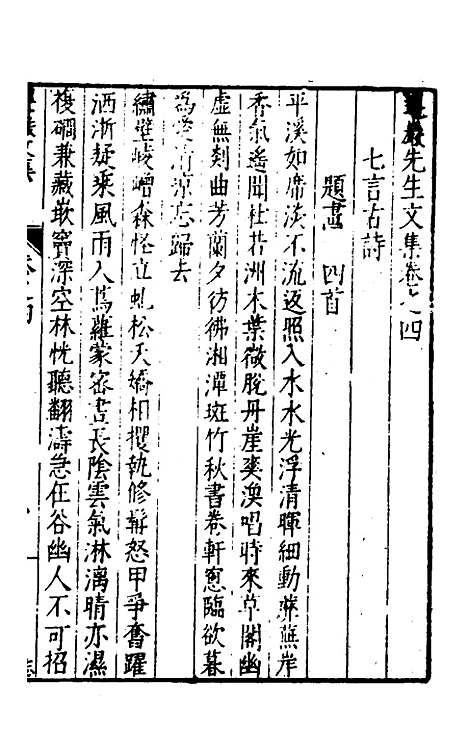 巖先生文集卷之四
七言古詩
題畫 四首
平溪如席淡不流返照入水水光浮清暉細動蘼蕪岸
香氣遙聞杜若洲木葉微脫丹崖爽漁唱時來草閣幽
虛無剡曲芳蘭夕彷彿湘潭斑竹秋書卷軒窓臨欲暮
為愛清涼忘歸去
繡壁崚嶒森怪石虬松夭矯相攫執修髯怒甲爭奮躍
洒淅疑乘風雨入蔦蘿蒙密晝長陰雲氣淋漓晴亦濕
複磵兼藏嵌竇深空林恍聽翻濤急在谷幽人不可招